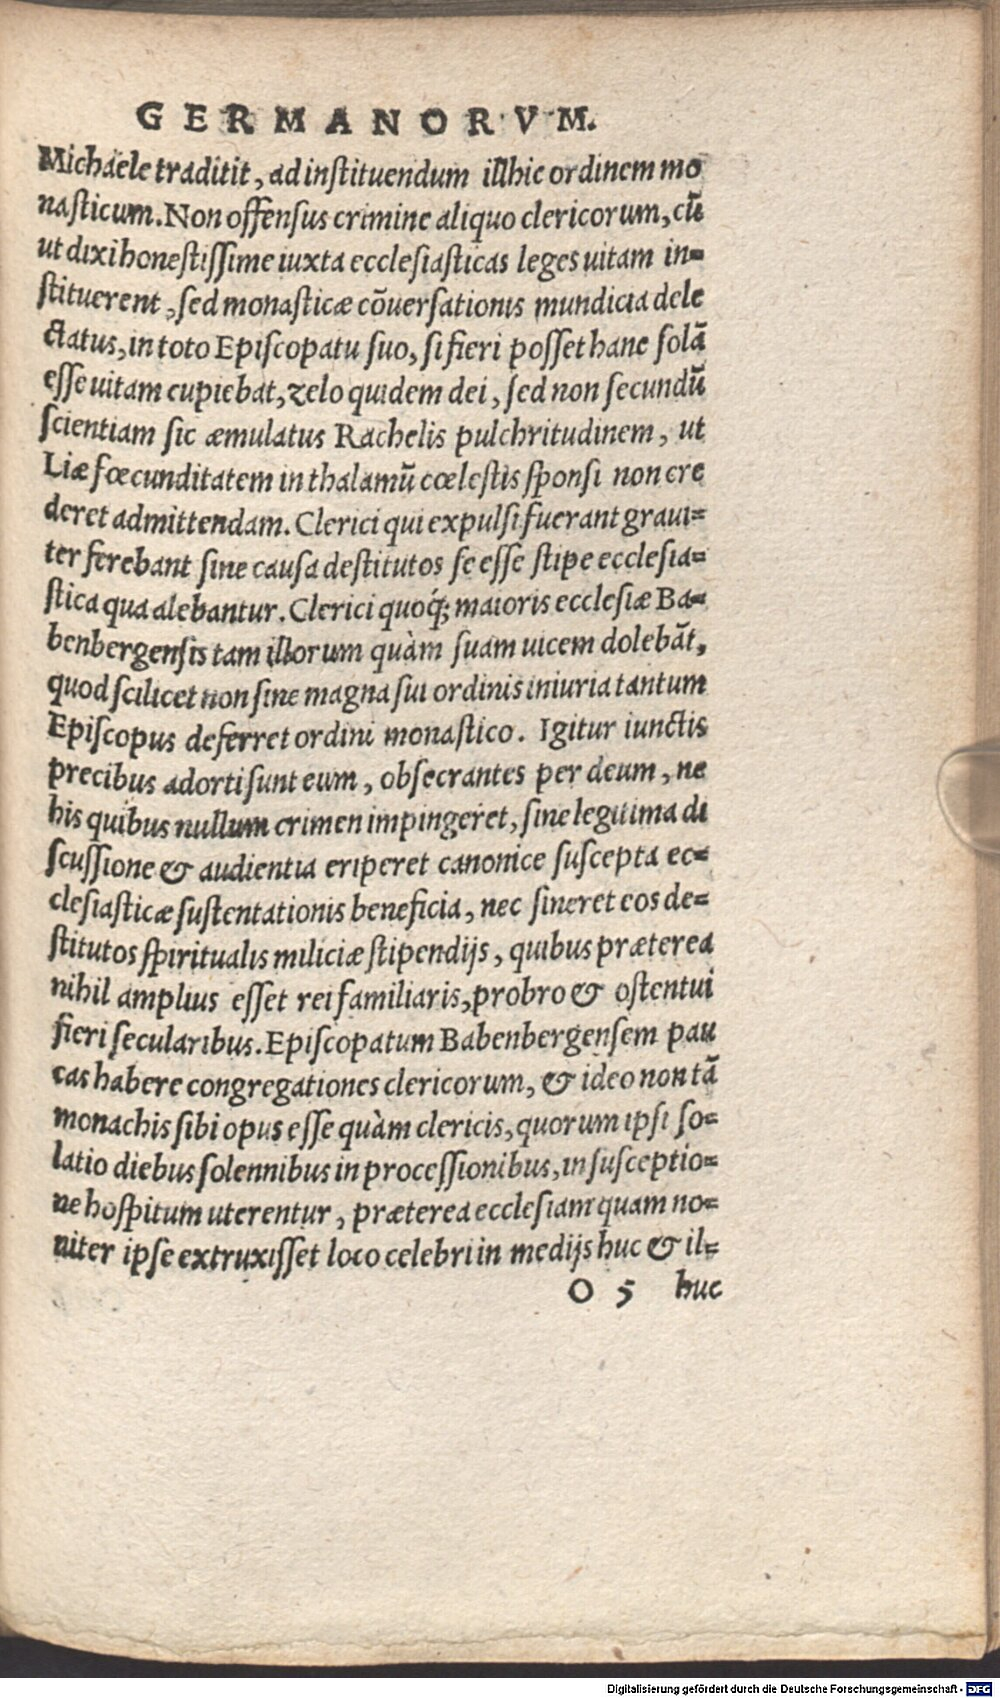 GERMANORVM.
Michaele traditit, ad inſtituendum illhic ordinem mo
naſticum. Non offenſus crimine aliquo clericorum, cū
ut dixi honeſtiſſime iuxta eccleſiaſticas leges uitam in=
ſtituerent, ſed monaſticæ cōuerſationis mundicia dele
ctatus, in toto Epiſcopatu ſuo, ſi fieri poſſet hanc ſolā
eſſe uitam cupiebat, zelo quidem dei, ſed non ſecundū
ſcientiam ſic æmulatus Rachelis pulchritudinem, ut
Liæ fœcunditatem in thalamū cœleſtis ſponſi non cre
deret admittendam. Clerici qui expulſi fuerant graui=
ter ferebant ſine cauſa deſtitutos ſe eſſe ſtipe eccleſia=
ſtica qua alebantur. Clerici quoq́; maioris eccleſiæ Ba=
benbergenſis tam illorum quàm ſuam uicem dolebāt,
quod ſcilicet non ſine magna ſui ordinis iniuria tantum
Epiſcopus deferret ordini monaſtico. Igitur iunctis
precibus adorti ſunt eum, obſecrantes per deum, ne
his quibus nullum crimen impingeret, ſine legitima di
ſcuſſione & audientia eriperet canonice ſuſcepta ec=
cleſiaſticæ ſuſtentationis beneficia, nec ſineret eos de=
ſtitutos ſpiritualis miliciæ ſtipendijs, quibus præterea
nihil amplius eſſet rei familiaris, probro & oſtentui
fieri ſecularibus. Epiſcopatum Babenbergenſem pau
cas habere congregationes clericorum, & ideo non tā
monachis ſibi opus eſſe quàm clericis, quorum ipſi ſo=
latio diebus ſolennibus in proceſſionibus, in ſuſceptio=
ne hoſpitum uterentur, præterea eccleſiam quam no=
niter ipſe extruxiſſet loco celebri in medijs huc & il=
O 5 huc
Digitalisierung gefördert durch die Deutsche Forschungsgemeinschaft - DFG